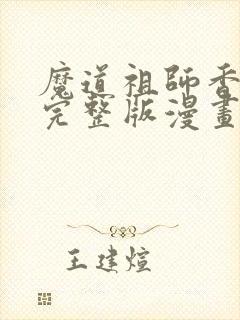 魔道祖師香
完整版漫畫
王建煊